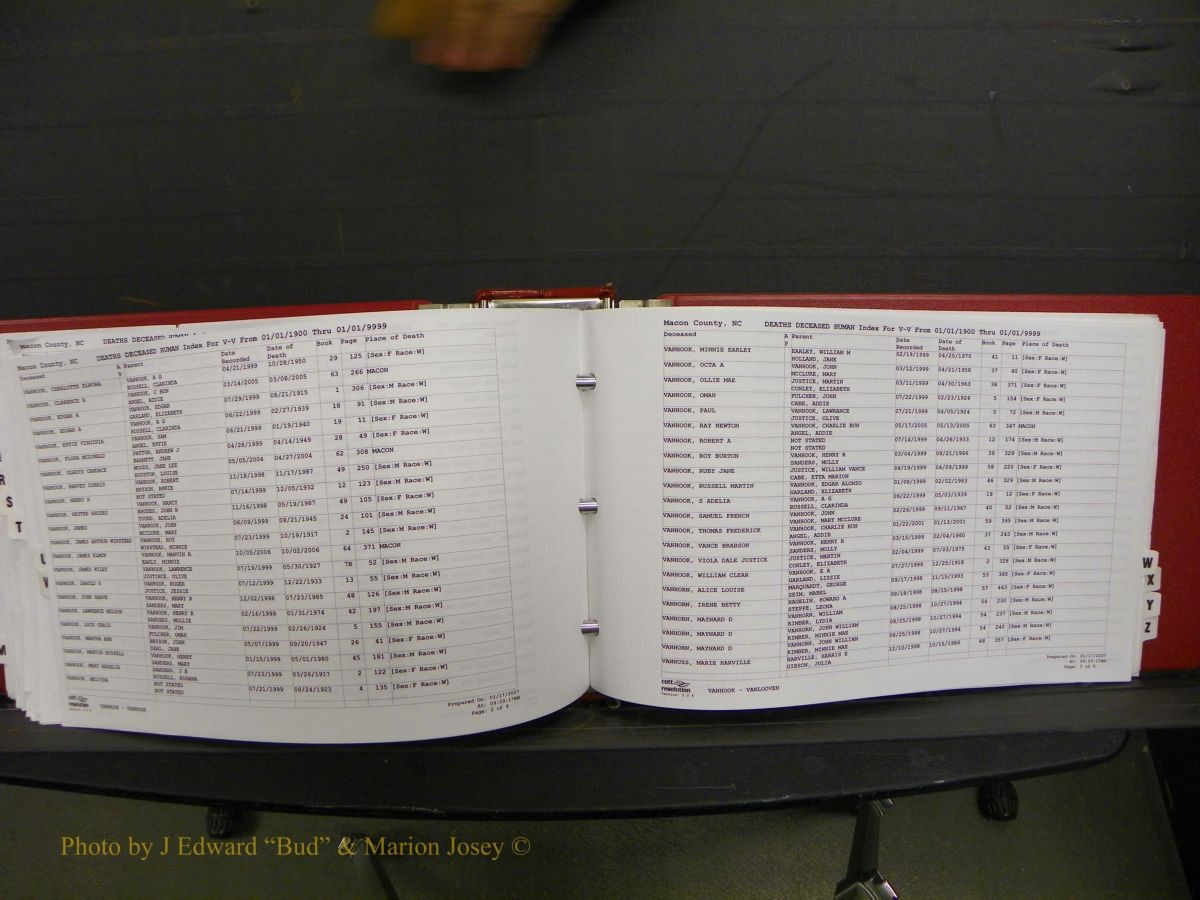 Macon County, NC DEATHS DECEASED HUMAN Index For V-V From 01/01/1900 Thru 01/01/9999
Deceased A Parent Date Recorded Date of Death Book Page Place of Death
VANHOOK, CHARLOTTE ELNORA VANHOOK, A G 04/21/1999 10/28/1950 29 125 [Sex:F Race:W]
RUSSELL, CLARINDA
VANHOOK, CLARENCE R VANHOOK, C RON 03/14/2005 03/08/2005 63 266 MACON
ANGEL, ADDIE
VANHOOK, EDGAR A VANHOOK, EDGAR 07/29/1999 08/21/1915 1 306 [Sex:M Race:W]
GARLAND, ELIZABETH
VANHOOK, EDGAR A VANHOOK, A G 06/22/1999 02/27/1939 18 91 [Sex:M Race:W]
RUSSELL, CLARINDA
VANHOOK, EFFIE VIRGINIA VANHOOK, SAM 05/21/1999 01/19/1940 19 11 [Sex:F Race:W]
ANGEL, EFFIE
VANHOOK, FLORA MCDONALD PATTON, ANDREW J 04/28/1999 04/14/1949 28 49 [Sex:F Race:W]
BARNETT, JANE
VANHOOK, GLADYS CANDACE WOODS, JAKE LEE 05/05/2004 04/27/2004 62 308 MACON
HOUSTON, LOUISE
VANHOOK, HARVEY DORRIS VANHOOK, ROBERT 11/18/1998 11/17/1987 49 250 [Sex:M Race:W]
BRYSON, ANNIE
VANHOOK, HENRY R NOT STATED 07/14/1999 12/05/1932 12 123 [Sex:M Race:W]
VANHOOK, NANCY
VANHOOK, HESTER RHODES RHODES, JOHN N 11/16/1998 05/19/1987 49 105 [Sex:F Race:W]
YOUNG, ADELIA
VANHOOK, JAMES VANHOOK, JOHN 06/09/1999 08/21/1945 24 101 [Sex:M Race:W]
MCCLURE, MARY
VANHOOK, JAMES ARTHUR WINSTEAD VANHOOK, ROY 07/23/1999 10/19/1917 2 145 [Sex:M Race:W]
WINSTEAD, MINNIE
VANHOOK, JAMES ELMON VANHOOK, MARVIN R 10/05/2006 10/02/2006 64 371 MACON
EARLY, MINNIE
VANHOOK, JAMES WILEY VANHOOK, LAWRENCE 07/19/1999 05/30/1927 7B 52 [Sex:M Race:W]
JUSTINCE, OLIVE
VANHOOK, JAROLD D VANHOOK, ROGER 07/12/1999 12/22/1933 13 55 [Sex:M Race:W]
JUSTICE, JESSIE
VANHOOK, JOHN HARVE VANHOOK, HENRY R 12/02/1998 07/23/1985 48 126 [Sex:M Race:W]
SANDERS, MARY
VANHOOK, LAWRENCE NELSON VANHOOK, HENRY A 02/16/1999 01/31/1974 42 197 [Sex:M Race:W]
SANDERS, MOLLIE
VANHOOK, LOCH CRAIG VANHOOK, JIM 07/22/1999 02/26/1924 5 155 [Sex:M Race:W]
FULCHER, OMAH
VANHOOK, MARTHA ANN BRYSON, JOHN 05/07/1999 09/20/1947 26 41 [Sex:F Race:W]
DEAL, JANE
VANHOOK, MARVIN RUSSELL VANHOOK, HENRY 01/15/1999 05/01/1980 45 181 [Sex:M Race:W]
SANDERS, MARY
VANHOOK, MARY ANGELIA SANDERS, J B 07/23/1999 03/26/1917 2 122 [Sex:F Race:W]
RUSSELL, ROXANA
VANHOOK, MELVINA NOT STATED 07/21/1999 08/24/1923 4 135 [Sex:F Race:W]
NOT STATED
cott resolution VANHOOK - VANHOOK
Prepared On: 01/17/2007
At: 09:29:17AM
Page: 2 of 9
Macon County, NC DEATHS DECEASED HUMAN Index For V-V From 01/01/1900 Thru 01/01/9999
Deceased A Parent Date Recorded Date of Death Book Page Place of Death
VANHOOK, MINNIE EARLEY EARLEY, WILLIAM M 02/19/1999 04/20/1970 41 11 [Sex:F Race:W]
HOLLAND, JANE
VANHOOK, OCTA A VANHOOK, JOHN 03/12/1999 04/21/1958 37 40 [Sex:F Race:W]
MCCLURE, MARY
VANHOOK, OLLIE MAE JUSTICE, MARTIN 03/11/1999 04/30/1963 38 371 [Sex:F Race:W]
CONLEY, ELIZABETH
VANHOOK, OMAH FULCHER, JOHN 07/22/1999 02/23/1924 5 154 [Sex:F Race:W]
CABE, ADDIE
VANHOOK, PAUL VANHOOK, LAWRANCE 07/21/1999 04/05/1924 5 72 [Sex:M Race:W]
JUSTICE, OLIVE
VANHOOK, RAY NEWTON VANHOOK, CHARLIE BUN 05/17/2005 05/13/2005 63 347 MACON
ANGEL, ADDIE
VANHOOK, ROBERT A NOT STATED 07/14/1999 04/26/1933 12 174 [Sex:M Race:W]
NOT STATED
VANHOOK, ROY BURTON VANHOOK, HENRY R 03/04/1999 08/21/1966 39 329 [Sex:M Race:W]
SANDERS, MOLLY
VANHOOK, RUBY JANE JUSTICE, WILLIAM VANCE 04/19/1999 04/09/1999 58 220 [Sex:F Race:W]
CABE, ETTA MARION
VANHOOK, RUSSELL MARTIN VANHOOK, EDGAR ALONZO 01/08/1999 02/02/1983 46 329 [Sex:M Race:W]
GARLAND, ELIZABETH
VANHOOK, S ADELIA VANHOOK, A G 06/22/1999 05/03/1939 18 12 [Sex:F Race:W]
RUSSELL, CLARINDA
VANHOOK, SAMUEL FRENCH VANHOOK, JOHN 02/26/1999 09/11/1967 40 52 [Sex:M Race:W]
VANHOOK, MARY MCCLURE
VANHOOK, THOMAS FREDERICK VANHOOK, CHARLIE BUN 01/22/2001 01/13/2001 59 395 [Sex:M Race:W]
ANGEL, ADDIE
VANHOOK, VANCE BRABSON VANHOOK, HENRY R 03/15/1999 02/04/1960 37 243 [Sex:M Race:W]
SANDERS, MOLLY
VANHOOK, VIOLA DALE JUSTICE JUSTICE, MARTIN 02/04/1999 07/03/1975 43 55 [Sex:F Race:W]
CONLEY, ELIZABETH
VANHOOK, WILLIAM CLEAR VANHOOK, E A 07/27/1999 12/25/1918 2 328 [Sex:M Race:W]
GARLAND, LIZZIE
VANHORN, ALICE LOUISE MARQUARDT, GEORGE 09/17/1998 11/15/1993 53 365 [Sex:F Race:W]
SEIM, MABEL
VANHORN, IRENE BETTY HAGELIN, HOWARD A 08/18/1998 08/15/1998 57 443 [Sex:F Race:W]
STEPPE, LEONA
VANHORN, MAYNARD D VANHORN, WILLIAM 08/25/1998 10/27/1994 54 230 [Sex:M Race:W]
KIMBER, LYDIA
VANHORN, MAYNARD D VANHORN, JOHN WILLIAM 08/25/1998 10/27/1994 54 237 [Sex:M Race:W]
KIMBER, MINNIE MAE
VANHORN, MAYNARD D VANHORN, JOHN WILLIAM 08/25/1998 10/27/1994 54 240 [Sex:M Race:W]
KIMBER, MINNIE MAE
VANHUSS, MARIE HARVILLE HARVILLE, HARRIS E 12/10/1998 10/15/1986 48 357 [Sex:F Race:W]
GIBSON, JULIA
cott resolution VANHOOK - VANLOOVEN
Prepared On: 01/17/2007
At: 09:29:17AM
Page: 3 of 9
R
S
T
U
V
M
W
X
Y
Z
Photo by J Edward “Bud” & Marion Josey ©